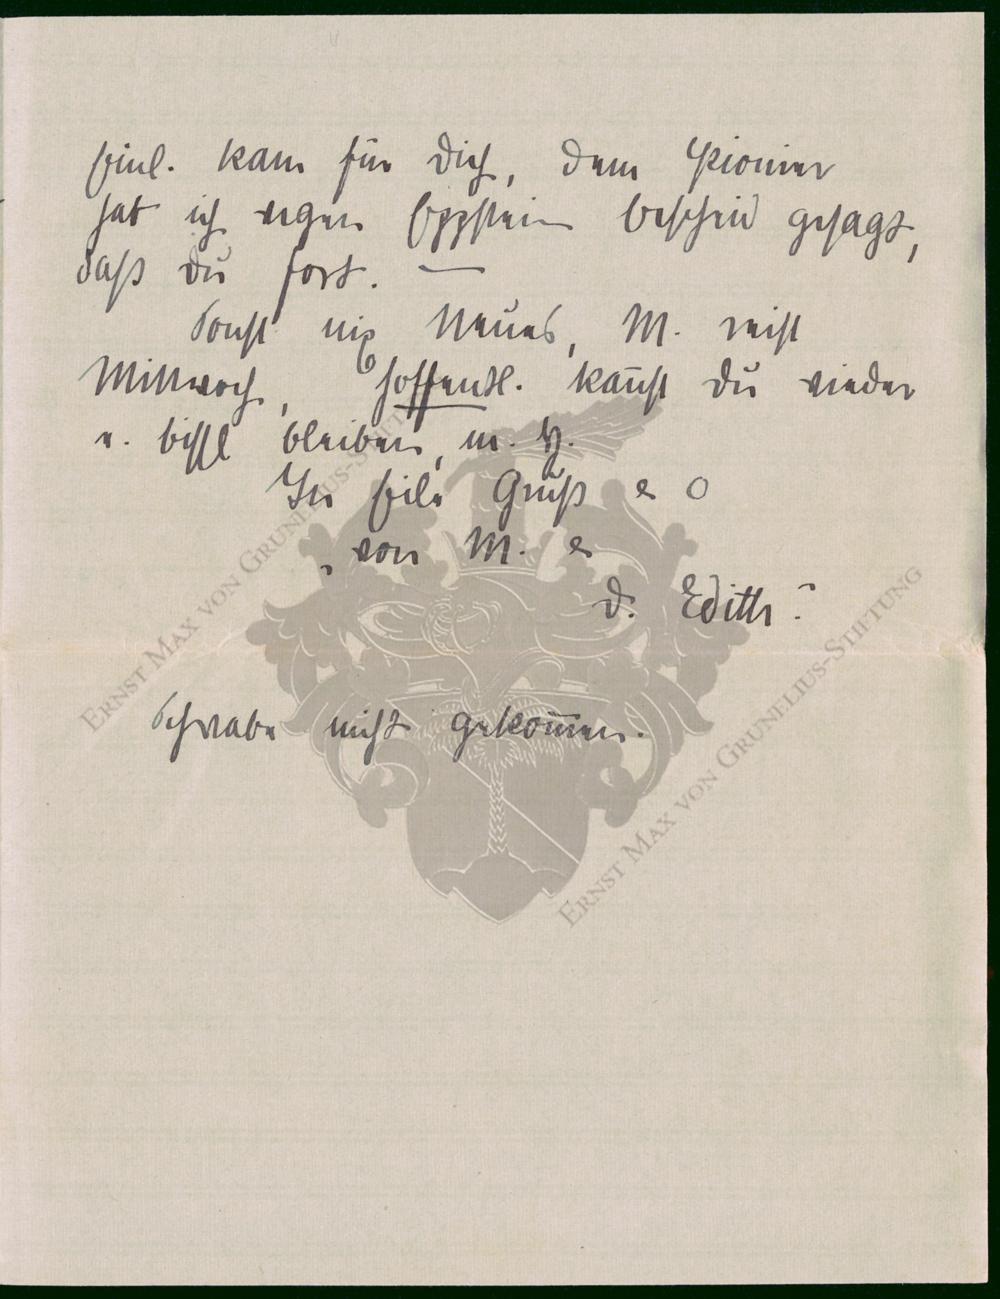 Einl. kam für Dich, dem Pionier
hab ich wegen Eppstein bescheid gesagt,
daß Du fort. —
Sonst nix Neues, M. reist
Mittwoch, hoffentl. kannst Du wieder
e. bissl bleiben, m. H.
Gruß & O
von M. &
D. Edith.
Schwabe nicht gekommen.
ERNST MAX VON GRUNELIUS-STIFTUNG
ERNST MAX VON GRUNELIUS-STIFTUNG